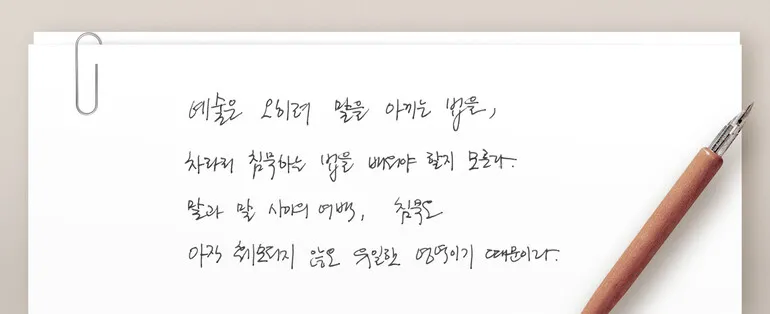 예술은 오히려 말을 아끼는 법을,
차라리 침묵하는 법을 배워야 할지 모른다.
말과 말 사이의 여백, 침묵도
아직 훼손되지 않은 유일한 영역이기 때문이다.